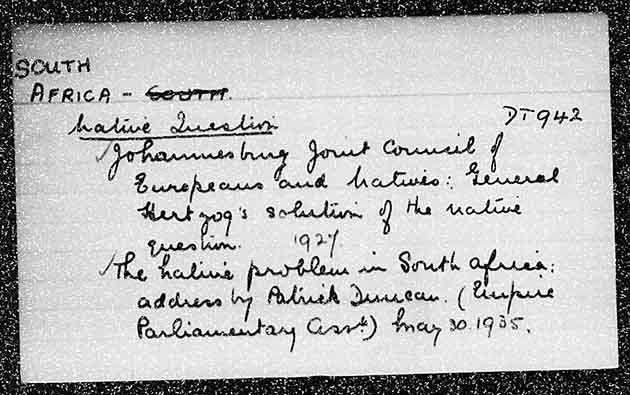 SOUTH
AFRICA - SOUTH.
Native Question DT942
✓Johannesburg Joint Council of
Europeans and Natives: General
Hertzog's solution of the native
question. 1927.
✓The Native problem in South Africa:
address by Patrick Duncan. (Empire
Parliamentary Assn) May 30 1935.